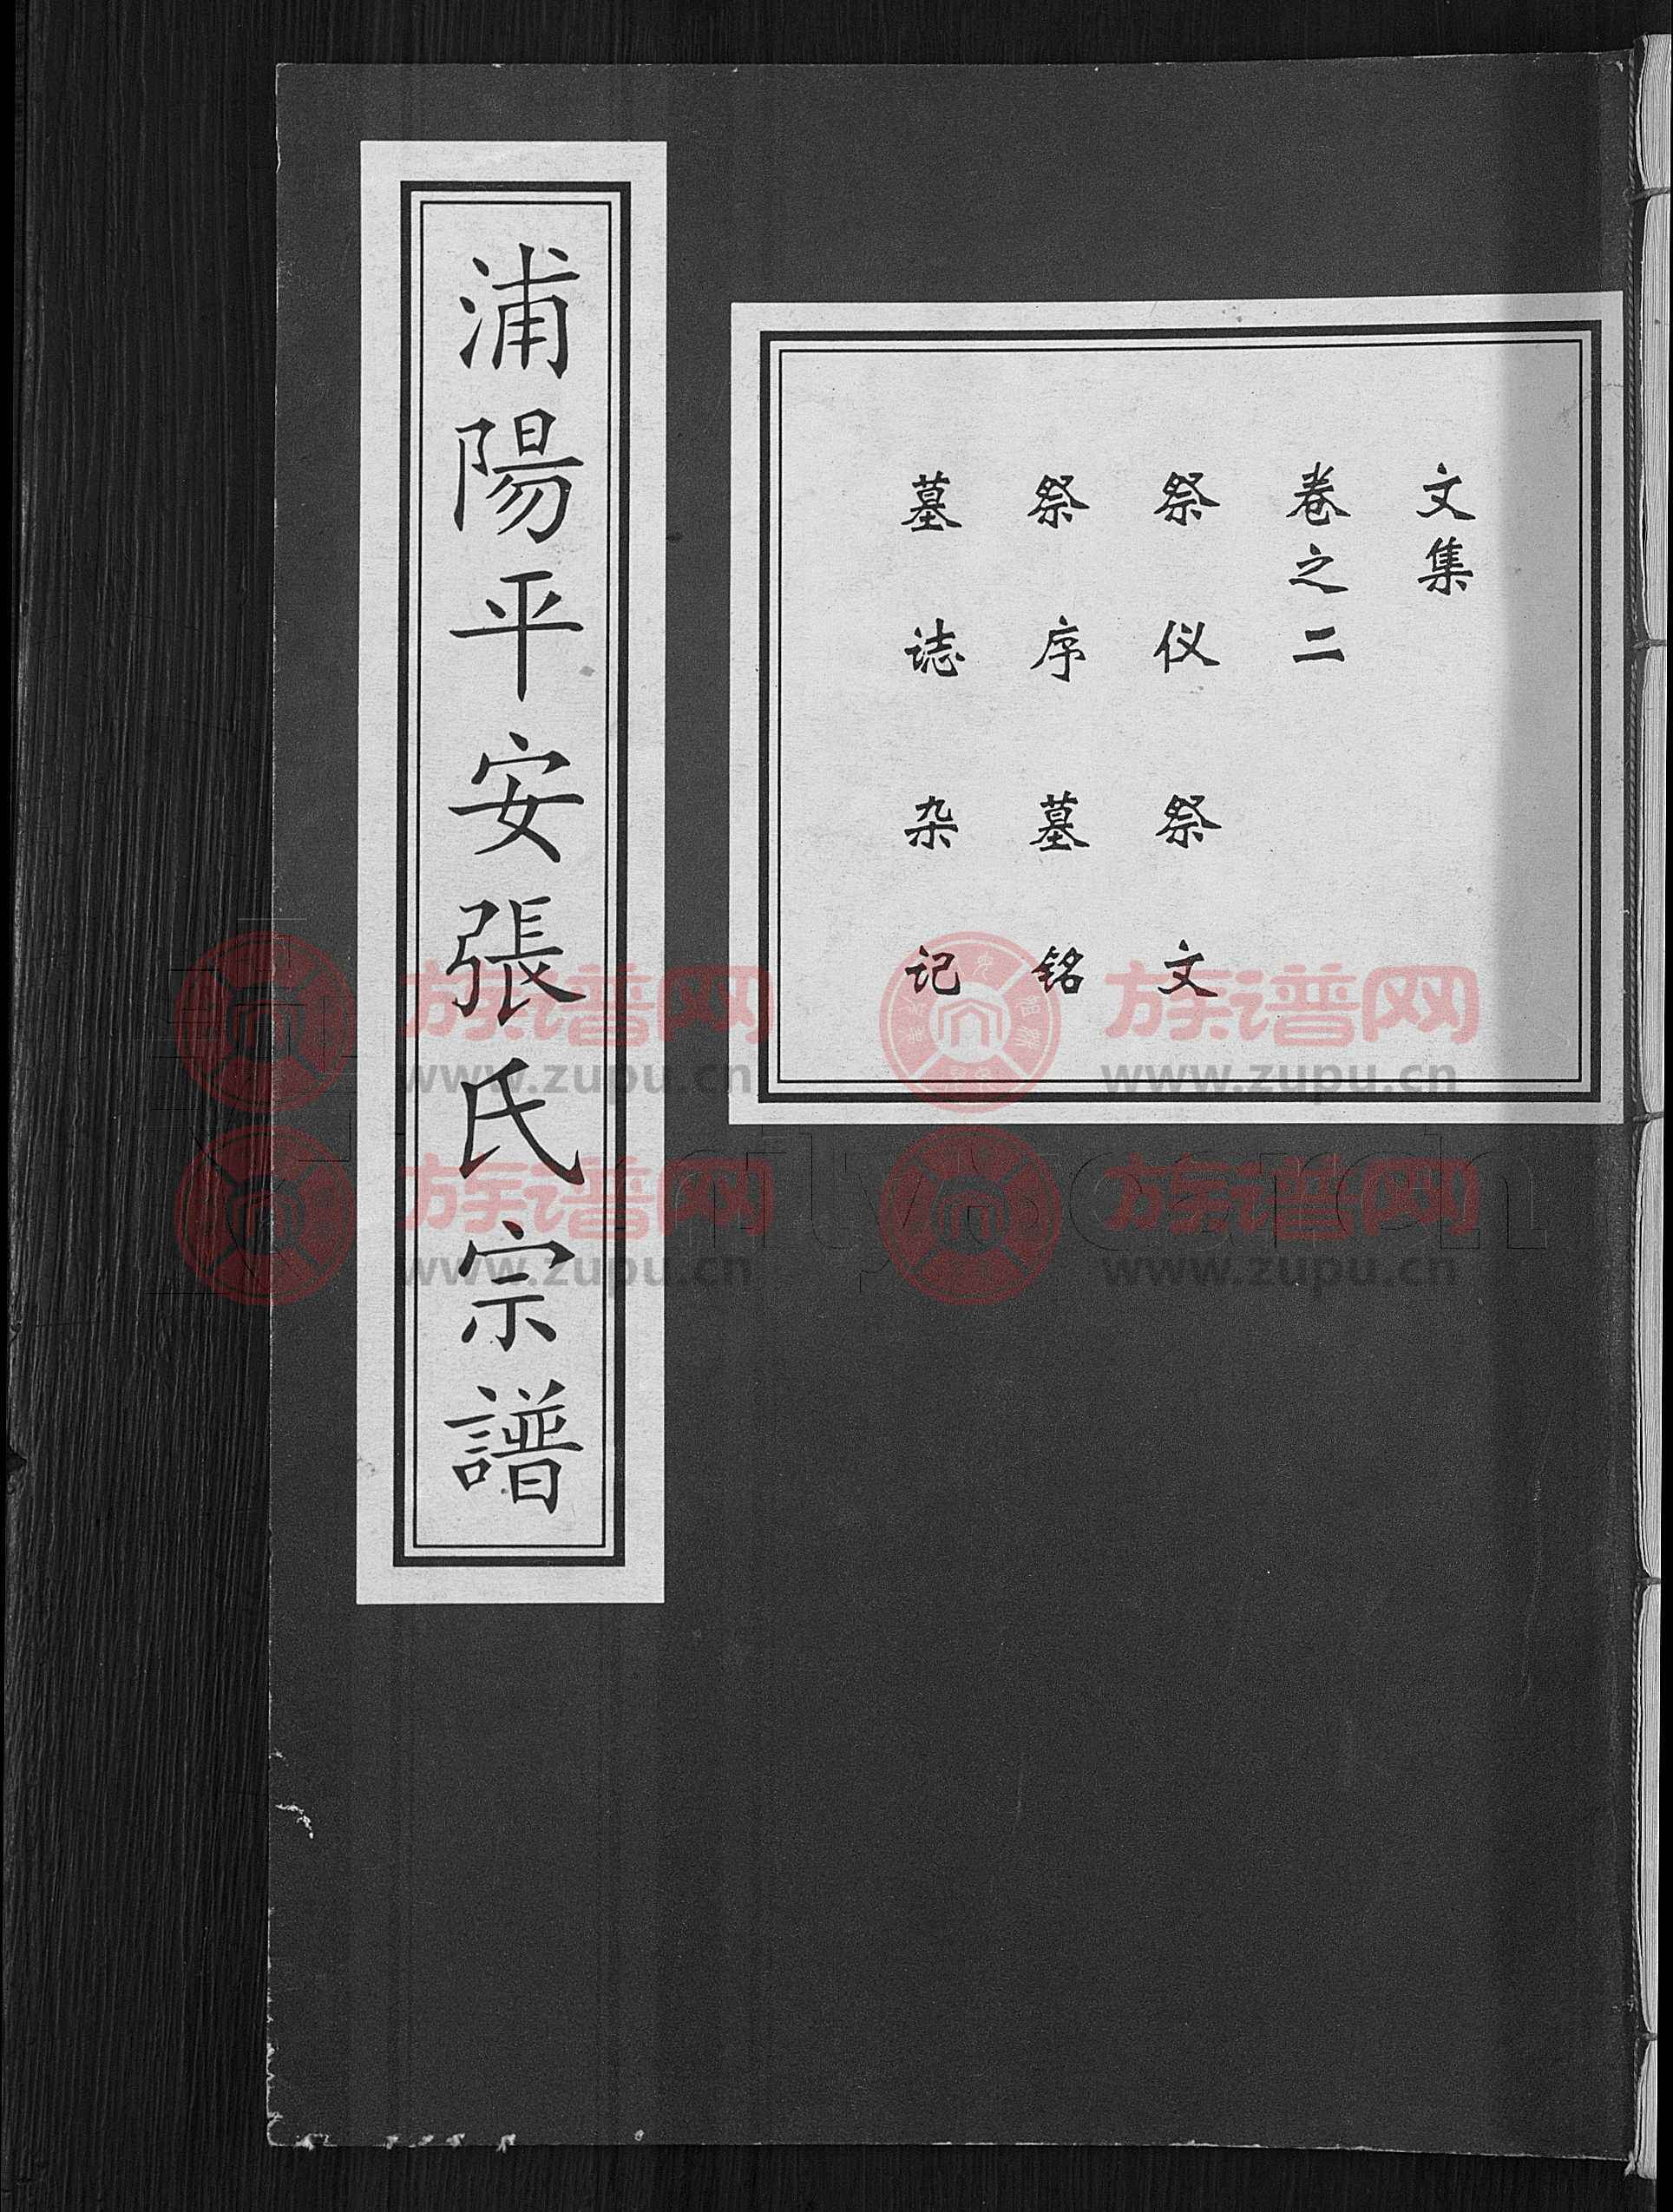 文集
卷之二
祭仪 祭文
祭序 墓铭
墓誌 杂记
浦陽平安張氏宗譜
族谱网 族谱网
www.zupu.cn www.zupu.cn
族谱网 族谱网
www.zupu.cn www.zupu.cn